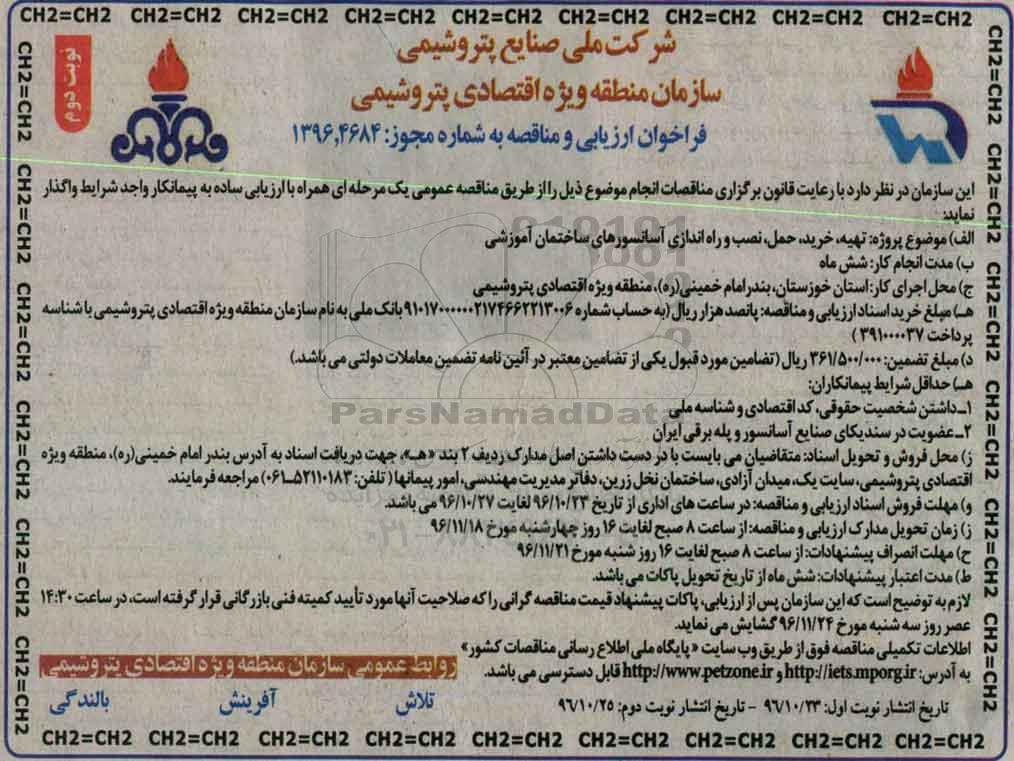 CH2=CH2 CH2=CH2 CH2=CH2 CH2=CH2 CH2=CH2 CH2=CH2 CH2=CH2 CH2=CH2 CH2=CH2
نوبت دوم
شرکت ملی صنایع پتروشیمی
سازمان منطقه ویژه اقتصادی پتروشیمی
فراخوان ارزیابی و مناقصه به شماره مجوز: ۱۳۹۶,۴۶۸۴
این سازمان در نظر دارد با رعایت قانون برگزاری مناقصات انجام موضوع ذیل را از طریق مناقصه عمومی یک مرحله ای همراه با ارزیابی ساده به پیمانکار واجد شرایط واگذار
نماید:
الف) موضوع پروژه: تهیه، خرید، حمل، نصب و راه اندازی آسانسورهای ساختمان آموزشی
ب) مدت انجام کار: شش ماه
ج) محل اجرای کار: استان خوزستان، بندرامام خمینی(ره)، منطقه ویژه اقتصادی پتروشیمی
هـ) مبلغ خرید اسناد ارزیابی و مناقصه: پانصد هزار ریال (به حساب شماره ۲۱۷۴۶۶۲۲۱۳۰۰۶ ۹۱۰۱۷۰۰۰۰۰۰ بانک ملی به نام سازمان منطقه ویژه اقتصادی پتروشیمی با شناسه
پرداخت ۳۹۱۰۰۰۰۳۷ )
د) مبلغ تضمین: ۳۶۱/۵۰۰/۰۰۰ ریال (تضامین مورد قبول یکی از تضامین معتبر در آئین نامه تضمین معاملات دولتی می باشد.)
هـ) حداقل شرایط پیمانکاران:
۱ـ داشتن شخصیت حقوقی، کد اقتصادی و شناسه ملی
۲ـ عضویت در سندیکای صنایع آسانسور و پله برقی ایران
ز) محل فروش و تحویل اسناد: متقاضیان می بایست با در دست داشتن اصل مدارک ردیف ۲ بند «هـ»، جهت دریافت اسناد به آدرس بندر امام خمینی(ره)، منطقه ویژه
اقتصادی پتروشیمی، سایت یک، میدان آزادی، ساختمان نخل زرین، دفاتر مدیریت مهندسی، امور پیمانها ( تلفن: ۵۲۱۱۰۱۸۳ـ۰۶۱) مراجعه فرمایند.
و) مهلت فروش اسناد ارزیابی و مناقصه: در ساعت های اداری از تاریخ ۹۶/۱۰/۲۳ لغایت ۹۶/۱۰/۲۷ می باشد.
ز) زمان تحویل مدارک ارزیابی و مناقصه: از ساعت ۸ صبح لغایت ۱۶ روز چهارشنبه مورخ ۹۶/۱۱/۱۸
ح) مهلت انصراف پیشنهادات: از ساعت ۸ صبح لغایت ۱۶ روز شنبه مورخ ۹۶/۱۱/۲۱
ط) مدت اعتبار پیشنهادات: شش ماه از تاریخ تحویل پاکات می باشد.
لازم به توضیح است که این سازمان پس از ارزیابی، پاکات پیشنهاد قیمت مناقصه گرانی را که صلاحیت آنها مورد تأیید کمیته فنی بازرگانی قرار گرفته است، در ساعت ۱۴:۳۰
عصر روز سه شنبه مورخ ۹۶/۱۱/۲۴ گشایش می نماید.
اطلاعات تکمیلی مناقصه فوق از طریق وب سایت « پایگاه ملی اطلاع رسانی مناقصات کشور»
به آدرس: http://iets.mporg.ir و http://www.petzone.ir قابل دسترسی می باشد.
روابط عمومی سازمان منطقه ویژه اقتصادی پتروشیمی
تاریخ انتشار نوبت اول: ۹۶/۱۰/۲۳ - تاریخ انتشار نوبت دوم: ۹۶/۱۰/۲۵
تلاش آفرینش بالندگی
ParsNamadData
CH2=CH2 CH2=CH2 CH2=CH2 CH2=CH2 CH2=CH2 CH2=CH2 CH2=CH2 CH2=CH2 CH2=CH2
CH2=CH2 CH2=CH2 CH2=CH2 CH2=CH2 CH2=CH2 CH2=CH2
CH2=CH2 CH2=CH2 CH2=CH2 CH2=CH2 CH2=CH2 CH2=CH2